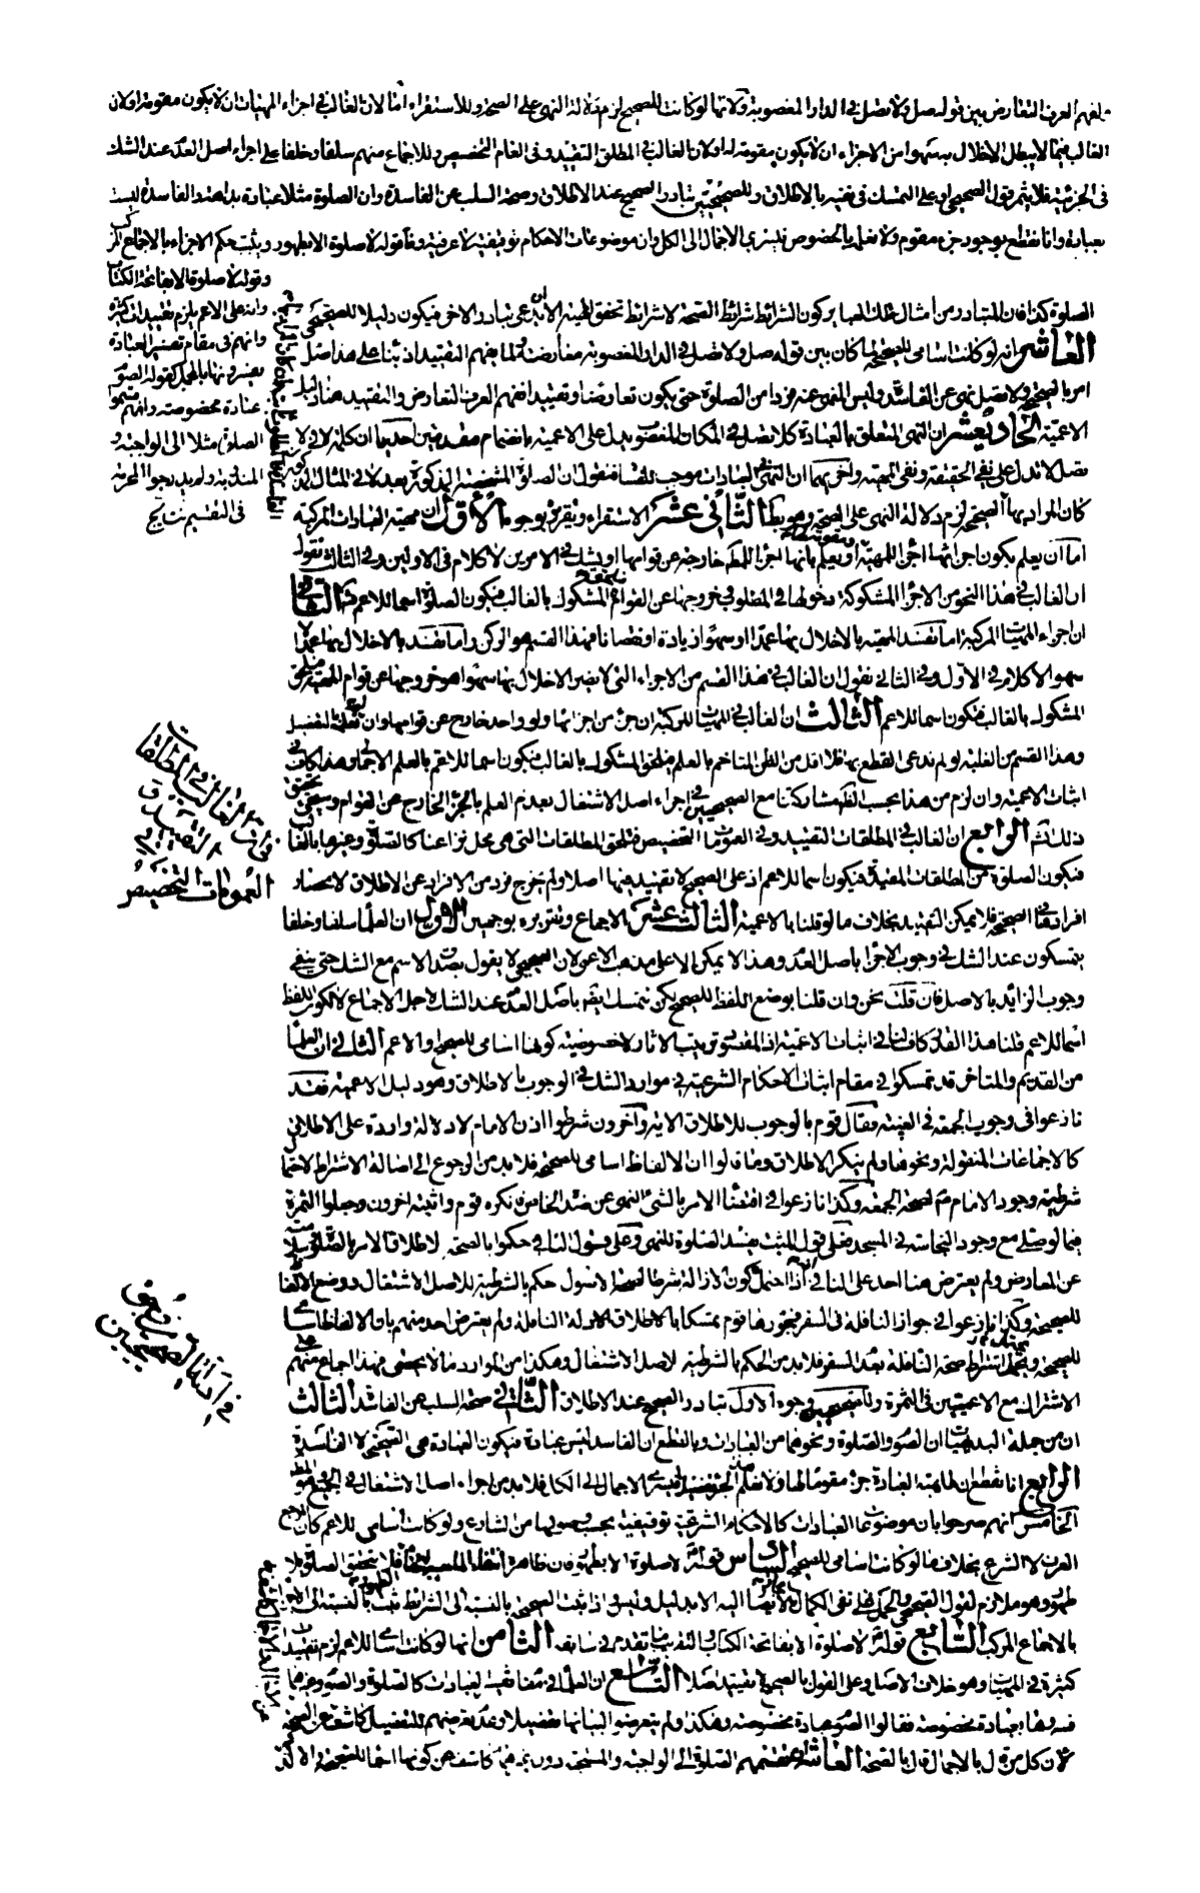 يفهم العرف التعارض بين قوله صل ولا تصل في الدار المغصوبة ولانها لو كانت للصحيح لزم دلالة النهي على الصحة وللاستقراء اما لان الغالب في اجزاء المهيات ان لا يكون مقومة او لان
الغالب فيما لا يبطل الاخلال به سهوا من الاجزاء ان لا يكون مقومة له او لان الغالب في المطلق التقييد وفي العام التخصيص وللاجماع منهم سلفا وخلفا على اجراء اصل العدم عند الشك
في الجزئية فلا يثمر قول الصحيحي او على التمسك في نفيه بالاطلاق وللصحيحيين تبادر الصحيح عند الاطلاق وصحة السلب عن الفاسدة وان الصلوة مثلا عبادة بداهة والفاسدة ليست
بعبادة وانا نقطع بوجود جزء مقوم ولا نعلمه بالخصوص فيسري الاجمال الى الكل وان موضوعات الاحكام توقيفية لا عرفية وقوله لا صلوة الا بطهور ويثبت حكم الاجزاء بالاجماع المركب
وقوله لا صلوة الا بفاتحة الكتاب
وانه على الاعم يلزم تقييدات كثيرة
وانهم في مقام تفسير العبادة
يفسرونها بالمجمل كقوله الصوم
عبادة مخصوصة وانهم قسموا
الصلوة مثلا الى الواجبة و
المندوبة ولم يريدوا المحرمة
في التقسيم
الصلوة كذا فان المتبادر من امثال تلك العباير كون الشرائط شرائط الصحة لا شرائط تحقق المهية الا ان يدعى تبادر الاخر فيكون دليلا للصحيحي
العاشر انه لو كانت اسامي للصحيحة لما كان بين قوله صل ولا تصل في الدار المغصوبة معارضة ولما يفهم التقييد اذ بناء على هذا صل
امر بالصحيحة ولا تصل نهي عن الفاسدة وليس المنهي عنه فردا من الصلوة حتى يكون تعارضا وتقييدا ففهم العرف التعارض والتقييد هنا دليل
الاعمية الحادي عشر ان النهي المتعلق بالعبادة كلا تصل في المكان المغصوب يدل على الاعمية بانضمام مقدمتين احديهما ان كلمة لا في لا
تصل لا تدل على نفي الحقيقة ونفي المهية واخريهما ان النهي في العبادات موجب للفساد فنقول ان لصلوة المنهية المذكورة بعد لا في المثال
كان المراد بها الصحيحة لزم دلالة النهي على الصحة وهو بط الثاني عشر الاستقراء وتقريره بوجوه الاول ان مهية العبادات المركبة
اما ان يعلم بكون اجزائها اجزاء للمهية او يعلم بانها اجزاء للمطلوب خارجة عن قوامها او يشك في الامرين لا كلام في الاولين وفي الثالث نقول
ان الغالب في هذا النحو من الاجزاء المشكوكة دخولها في المطلوب خروجها عن القوام فيلحق المشكوك بالغالب فيكون الصلوة اسما للاعم الثاني
ان اجزاء المهيات المركبة اما تفسد المهية بالاخلال بها عمدا او سهوا زيادة او نقصانا فهذا القسم هو الركن واما تفسد بالاخلال بها عمدا لا
سهوا لا كلام في الاول وفي الثاني نقول ان الغالب في هذا القسم من الاجزاء التي لا يضر الاخلال بها سهوا هو خروجها عن قوام المهية فيلحق
المشكوك بالغالب فيكون اسما للاعم الثالث ان الغالب في المهيات المركبة ان جزء من اجزائها ولو واحد خارج عن قوامها وان
وهذا القسم من الغلبة لو لم ندعي القطع بها فلا اقل من الظن المتاخم بالعلم فيلحق المشكوك بالغالب فيكون اسما للاعم بالعلم الاجمالي وهذا كاف في
اثبات الاعمية وان لزم من هذا بحسب الظاهر مشاركتنا مع الصحيحيين في اجراء اصل الاشتغال بعد عدم العلم بالجزء الخارج عن القوام وسيجيء تحقيق
ذلك ثم الرابع ان الغالب في المطلقات التقييد وفي العمومات التخصيص فيلحق المطلقات التي هي محل نزاعنا كالصلوة وغيرها بالغالب
فيكون الصلوة من المطلقات المقيدة فيكون اسما للاعم اذ على الصحيح لا تقييد فيها اصلا ولم يخرج فرد من الافراد عن الاطلاق لانحصار
افرادها في الصحيحة فلا يمكن التقييد بخلاف ما لو قلنا بالاعمية الثالث عشر الاجماع وتقريره بوجهين الاول ان العلماء سلفا وخلفا
يتمسكون عند الشك في وجوب الاجزاء باصل العدم وهذا لا يمكن الا على مذهب الاعمي لان الصحيحي لا يقول بصدق الاسم مع الشك حتى ينفي
وجوب الزايد بالاصل فان قلت نحن وان قلنا بوضع اللفظ للصحيح لكن نتمسك ايضا باصل العدم عند الشك لاجل الاجماع لا لكون اللفظ
اسما للاعم قلنا هذا القدر كاف لنا في اثبات الاعمية اذ المقصود ترتيب الاثار لا خصوصية كونها اسامي للصحيح او الاعم الثاني ان العلماء
من القديم والمتاخر قد تمسكوا في مقام اثبات الاحكام الشرعية في موارد الشك في الوجوب بالاطلاق وهو دليل الاعمية فقد
نازعوا في وجوب الجمعة في الغيبة فقال قوم بالوجوب للاطلاق الاية وآخرون شرطوا اذن الامام لا دلالة واردة على الاطلاق
كالاجماعات المنقولة ونحوها ولم ينكر الاطلاق وما قالوا ان الالفاظ اسامي للصحيحة فلا بد من الرجوع الى اصالة الاشتراط لاحتمال
شرطية وجود الامام لصحة الجمعة وكذا نازعوا في اقتضاء الامر بالشيء النهي عن ضده الخاص فنكره قوم واثبته اخرون وجعلوا الثمرة
فيما لو صلى مع وجود النجاسة في المسجد فعلى قول المثبت يفسد الصلوة للنهي وعلى قول النافي حكموا بالصحة لاطلاق الامر بالصلوة
عن المعارض ولم يعترض هنا احد على النافي انه اذا احتمل كون الازالة شرطا لصحة الاصول حكم بالشرطية للاصل الاشتغال ووضع الالفاظ
للصحيحة وكذا نازعوا في جواز النافلة في السفر فجوزها قوم تمسكا بالاطلاق الادلة النافلة ولم يعترض احد منهم بان الالفاظ اسامي
للصحيحة ويحتمل اشتراط صحة النافلة بعدم السفر فلا بد من الحكم بالشرطية لاصل الاشتغال وهكذا من الموارد مما لا يحصى فهذا اجماع منهم على
الاشتراك مع الاعميين في الثمرة وللصحيحيين وجوه الاول تبادر الصحيح عند الاطلاق الثاني صحة السلب عن الفاسد الثالث
ان من جملة البديهيات ان الصوم والصلوة ونحوهما من العبادات وبالقطع ان الفاسد ليس عبادة فيكون العبادة هي الصحيحة لا الفاسدة
الرابع انا نقطع ان لماهية العبادة جزء مقوما لها ولا نعلم الجزء فيسري الاجمال الى الكل فلا بد من اجراء اصل الاشتغال في الجميع وهو المط
الخامس انهم صرحوا بان موضوعات العبادات كالاحكام الشرعية توقيفية يجب وصولها من الشارع ولو كانت اسامي للاعم كان المرجع
العرف لا الشرع بخلاف ما لو كانت اسامي للصحيحة السادس قوله لا صلوة الا بطهور فان ظاهره انتفاء المهية فلا يتحقق الصلوة بلا
طهور وهو ملازم لقول الصحيحي والحمل على نفي الكمال لا يصار اليه الا بدليل وليس اذ ثبت الصحيحة بالنسبة الى الشرائط ثبت بالنسبة الى الاجزاء
بالاجماع المركب السابع قوله لا صلوة الا بفاتحة الكتاب والتقريب ما تقدم في سابقه الثامن انها لو كانت اسما للاعم لزم تقييدات
كثيرة في المهيات وهو خلاف الاصل وعلى القول بالصحيح لا تقييد اصلا التاسع ان العلماء في مقام تفسير العبادات كالصلوة والصوم وغيرهما
فسروها بعبادة مخصوصة فقالوا الصوم عبادة مخصوصة وهكذا ولم يتعرضوا لبيانها تفصيلا وعدم تعرضهم للتفصيل كاشف عن الصحة
لان كل من قال بالاجمال قال بالصحة العاشر تقسيمهم الصلوة الى الواجبة والمستحبة دون غيرهما كاشف عن كونها اسما للصحيحة اذ لا
في ان الغالب في المطلقات
التقييد و في
العمومات التخصيص
في ادلة الصحيحيين